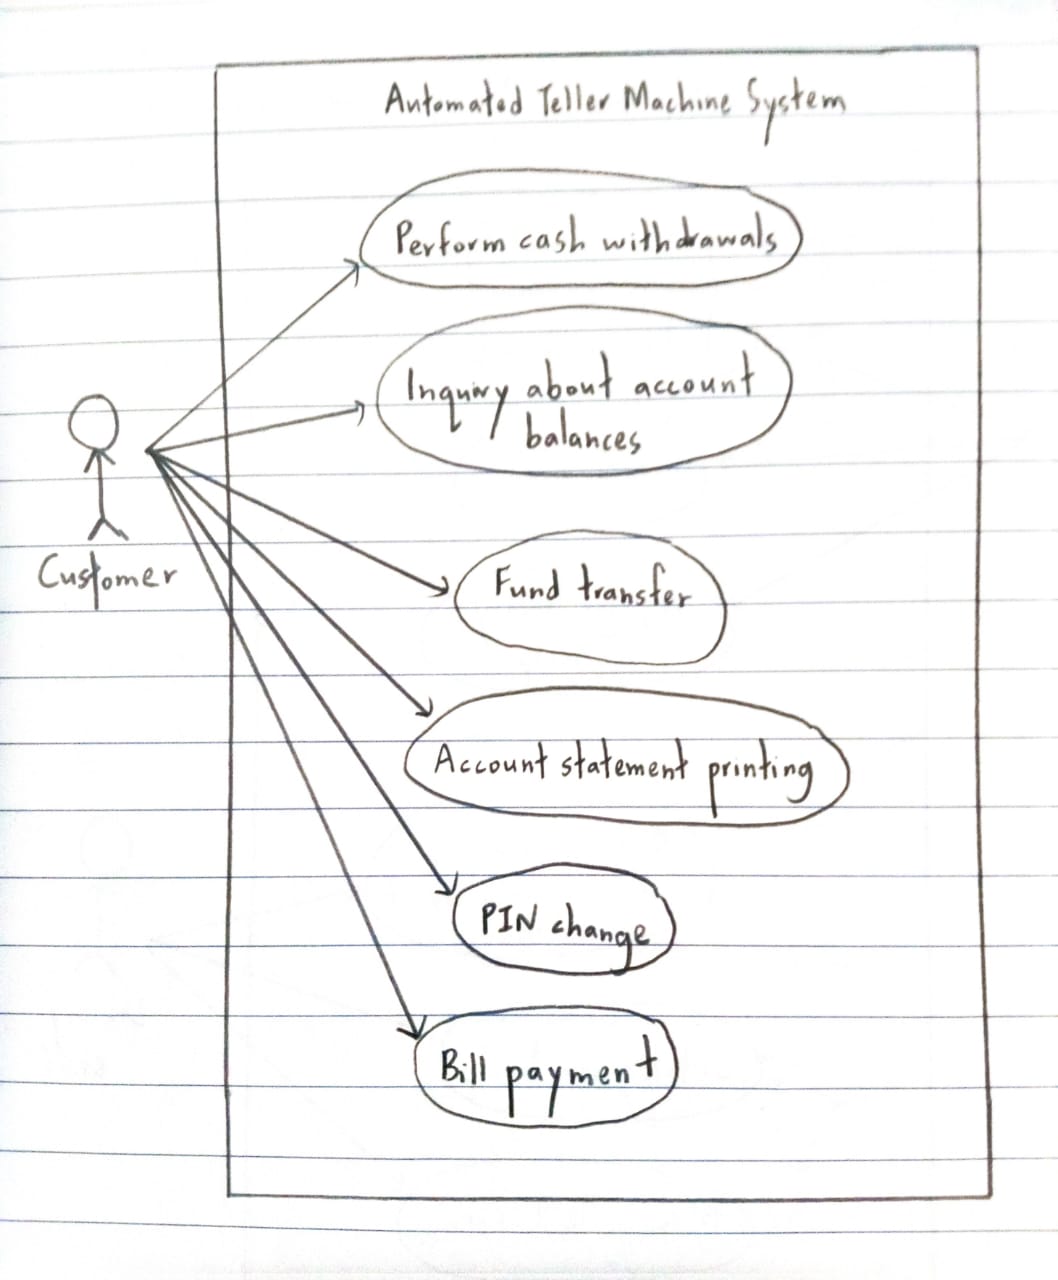 Automated Teller Machine System
Perform cash withdrawals
Inquiry about account
balances
Customer
Fund transfer
Account statement printing
PIN change
Bill payment